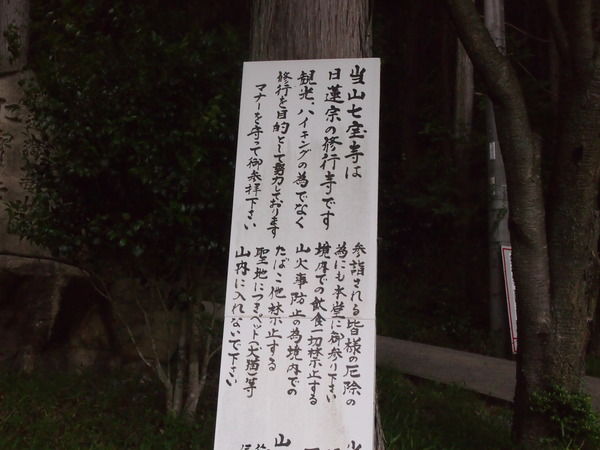 当山七宝寺は
日蓮宗の修行寺です
観光、ハイキングの為でなく
修行を目的として努力しております
マナーを守って御参拝下さい
参詣される皆様の厄除の
為にも本堂に御参り下さい
境内での飲食一切禁止する
山火事防止の為境内での
たばこ他禁止する
聖地につきペット(犬猫)等
山内に入れないで下さい